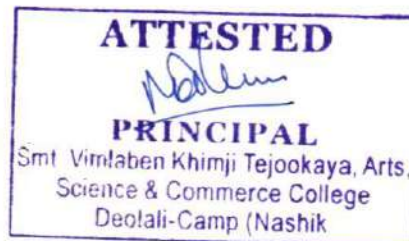 ATTESTED
PRINCIPAL
Smt Vimlaben Khimji Tejookaya, Arts,
Science & Commerce College
Deolali-Camp (Nashik